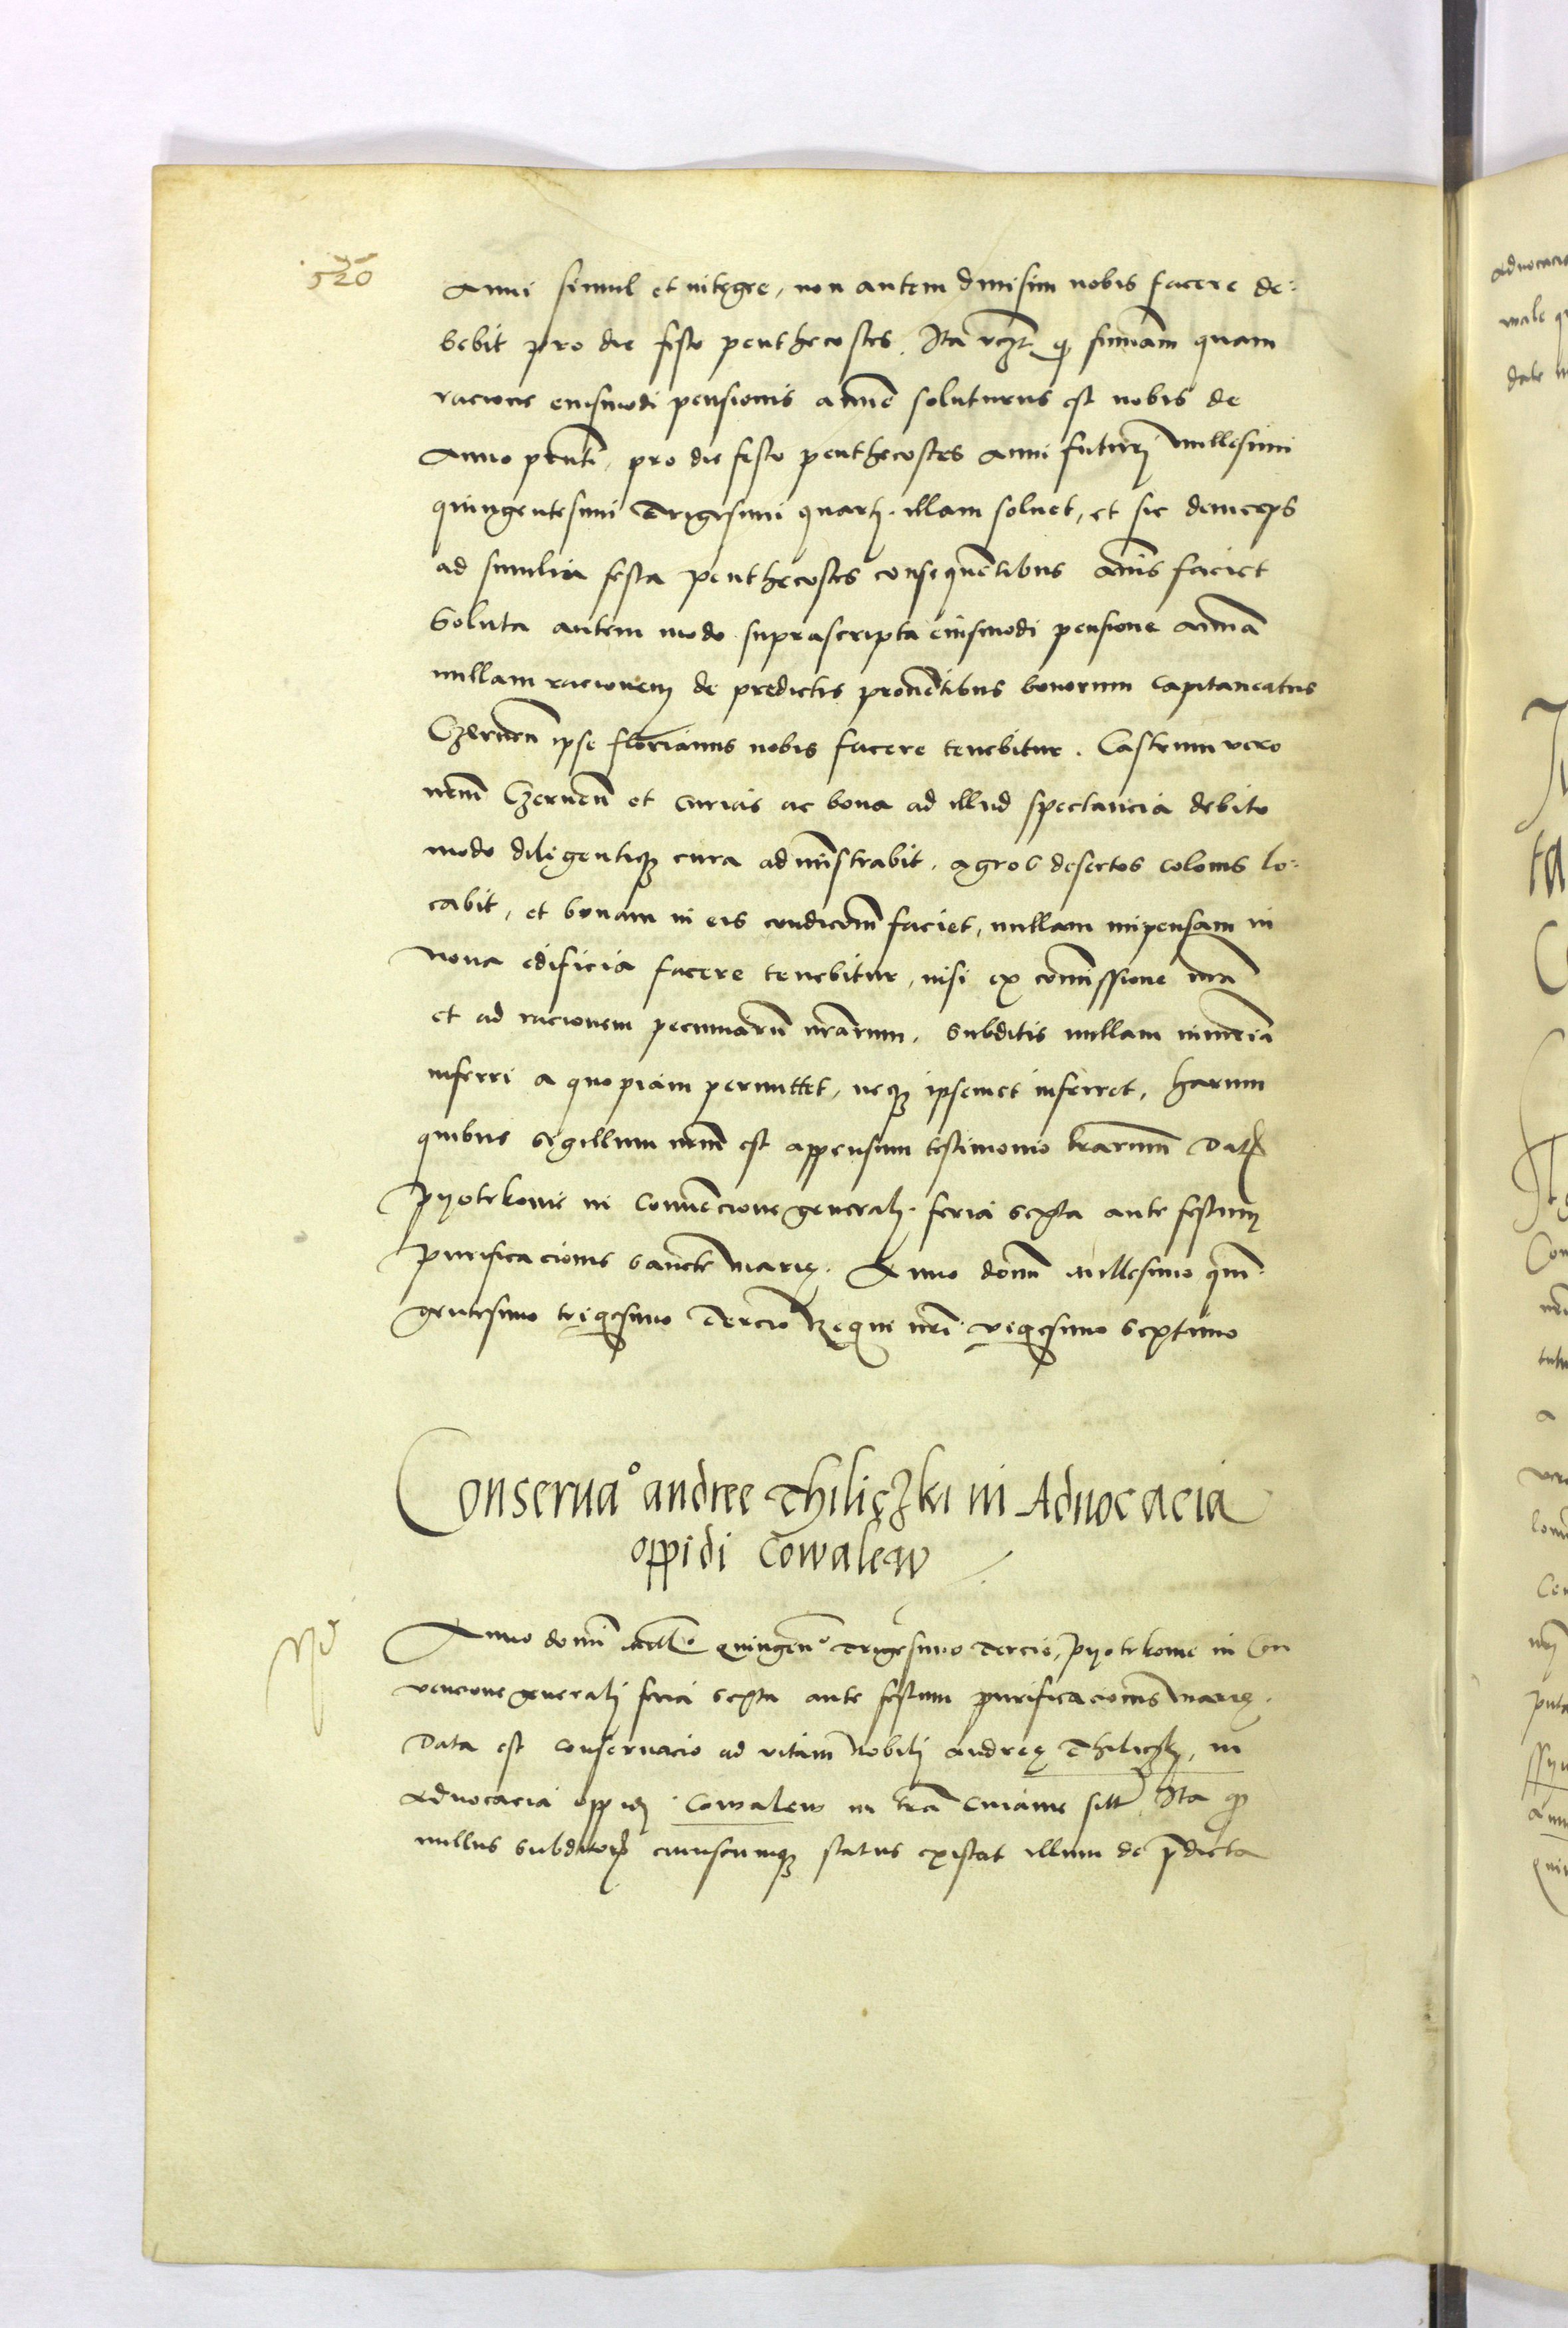 520
Anni simul et integre, non autem divisim nobis facere de:
bebit pro die festo penthecostes. Ita vcz. q summam quam
racione eiusmodi pensionis annue soluturus est nobis de
Anno pnti, pro die festo penthecostes anni futuri millesimi
quingentesimi Trigesimi quarti illam soluet, et sic deinceps
ad similia festa penthecostes consequentibus annis faciet
Soluta autem modo suprascripta eiusmodi pensione annua
nullam racionem de predictis prouentibus bonorum capitaneatus
Czernen ipse florianus nobis facere tenebitur. Castrum vero
nrm Czernen et curias ac bona ad illud spectancia debito
modo diligentique cura administrabit. agros desertos colonis lo:
cabit, et bonam in eis condicom faciet, nullam impensam in
Noua edificia facere tenebitur, nisi ex commissione nra
et ad racionem pecuniarum nrarum. Subditis nullam iniuriam
inferri a quopiam permittet, neque ipsemet inferret, harum
quibus sigillum nrum est appensum testimonio lrarum Dat
Pyotrkouie in Conuencione generali feria sexta ante festum
purificacionis sancte Marie. Anno domi Millesimo quin
gentesimo trigesimo Tercio Regni nri vigesimo septimo
Conseruao andree Thiliczki in Aduocacia
oppidi Cowalew
Anno domi Mill.o Quingen.o Trigesimo Tercio, Pyotrkouie in Con
vencione generali feria sexta ante festum purificacionis Marie.
Data est conseruacio ad vitam Nobili andree Thiliczki, in
Aduocacia oppidi Cowalew in tra Cuiauie sitt Ita q
nullus subditorum cuiuscumque status existat illum de pdicta